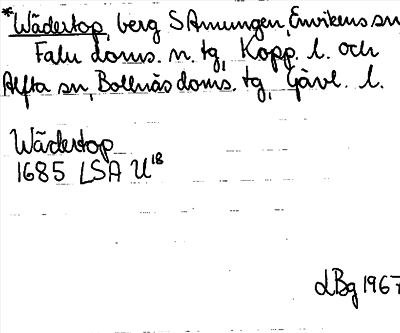 *Wädertop, berg S Amungen, Envikens sn
Falu doms. n. tg, Kopp. l. och
Alfta sn, Bollnäs doms. tg, Gävl. l.
Wädertop
1685 LSA U18
LBg 1967